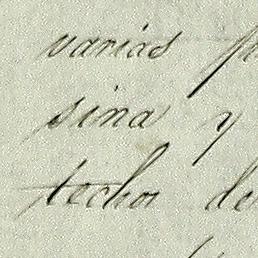 varias
sina y
techos de